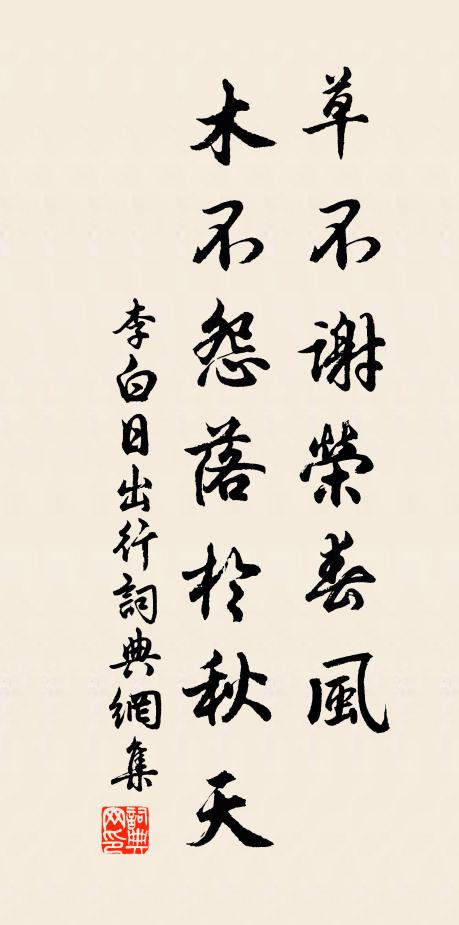 草不謝榮春風
木不怨落於秋天
李白日出行詞典網集
詞典網印